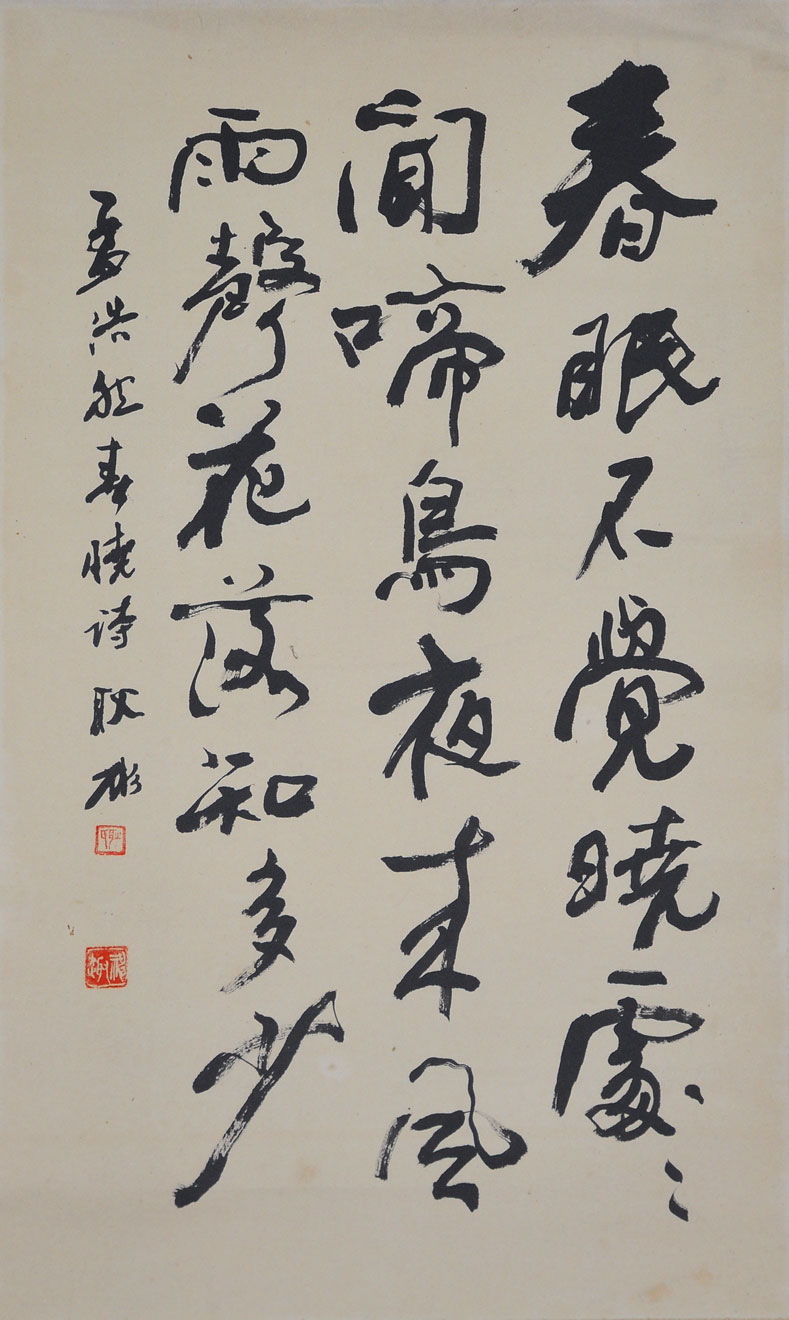 春眠不覺曉處〻
聞啼鳥夜来風
雨聲花落知多少
孟浩然春曉詩 耿彬